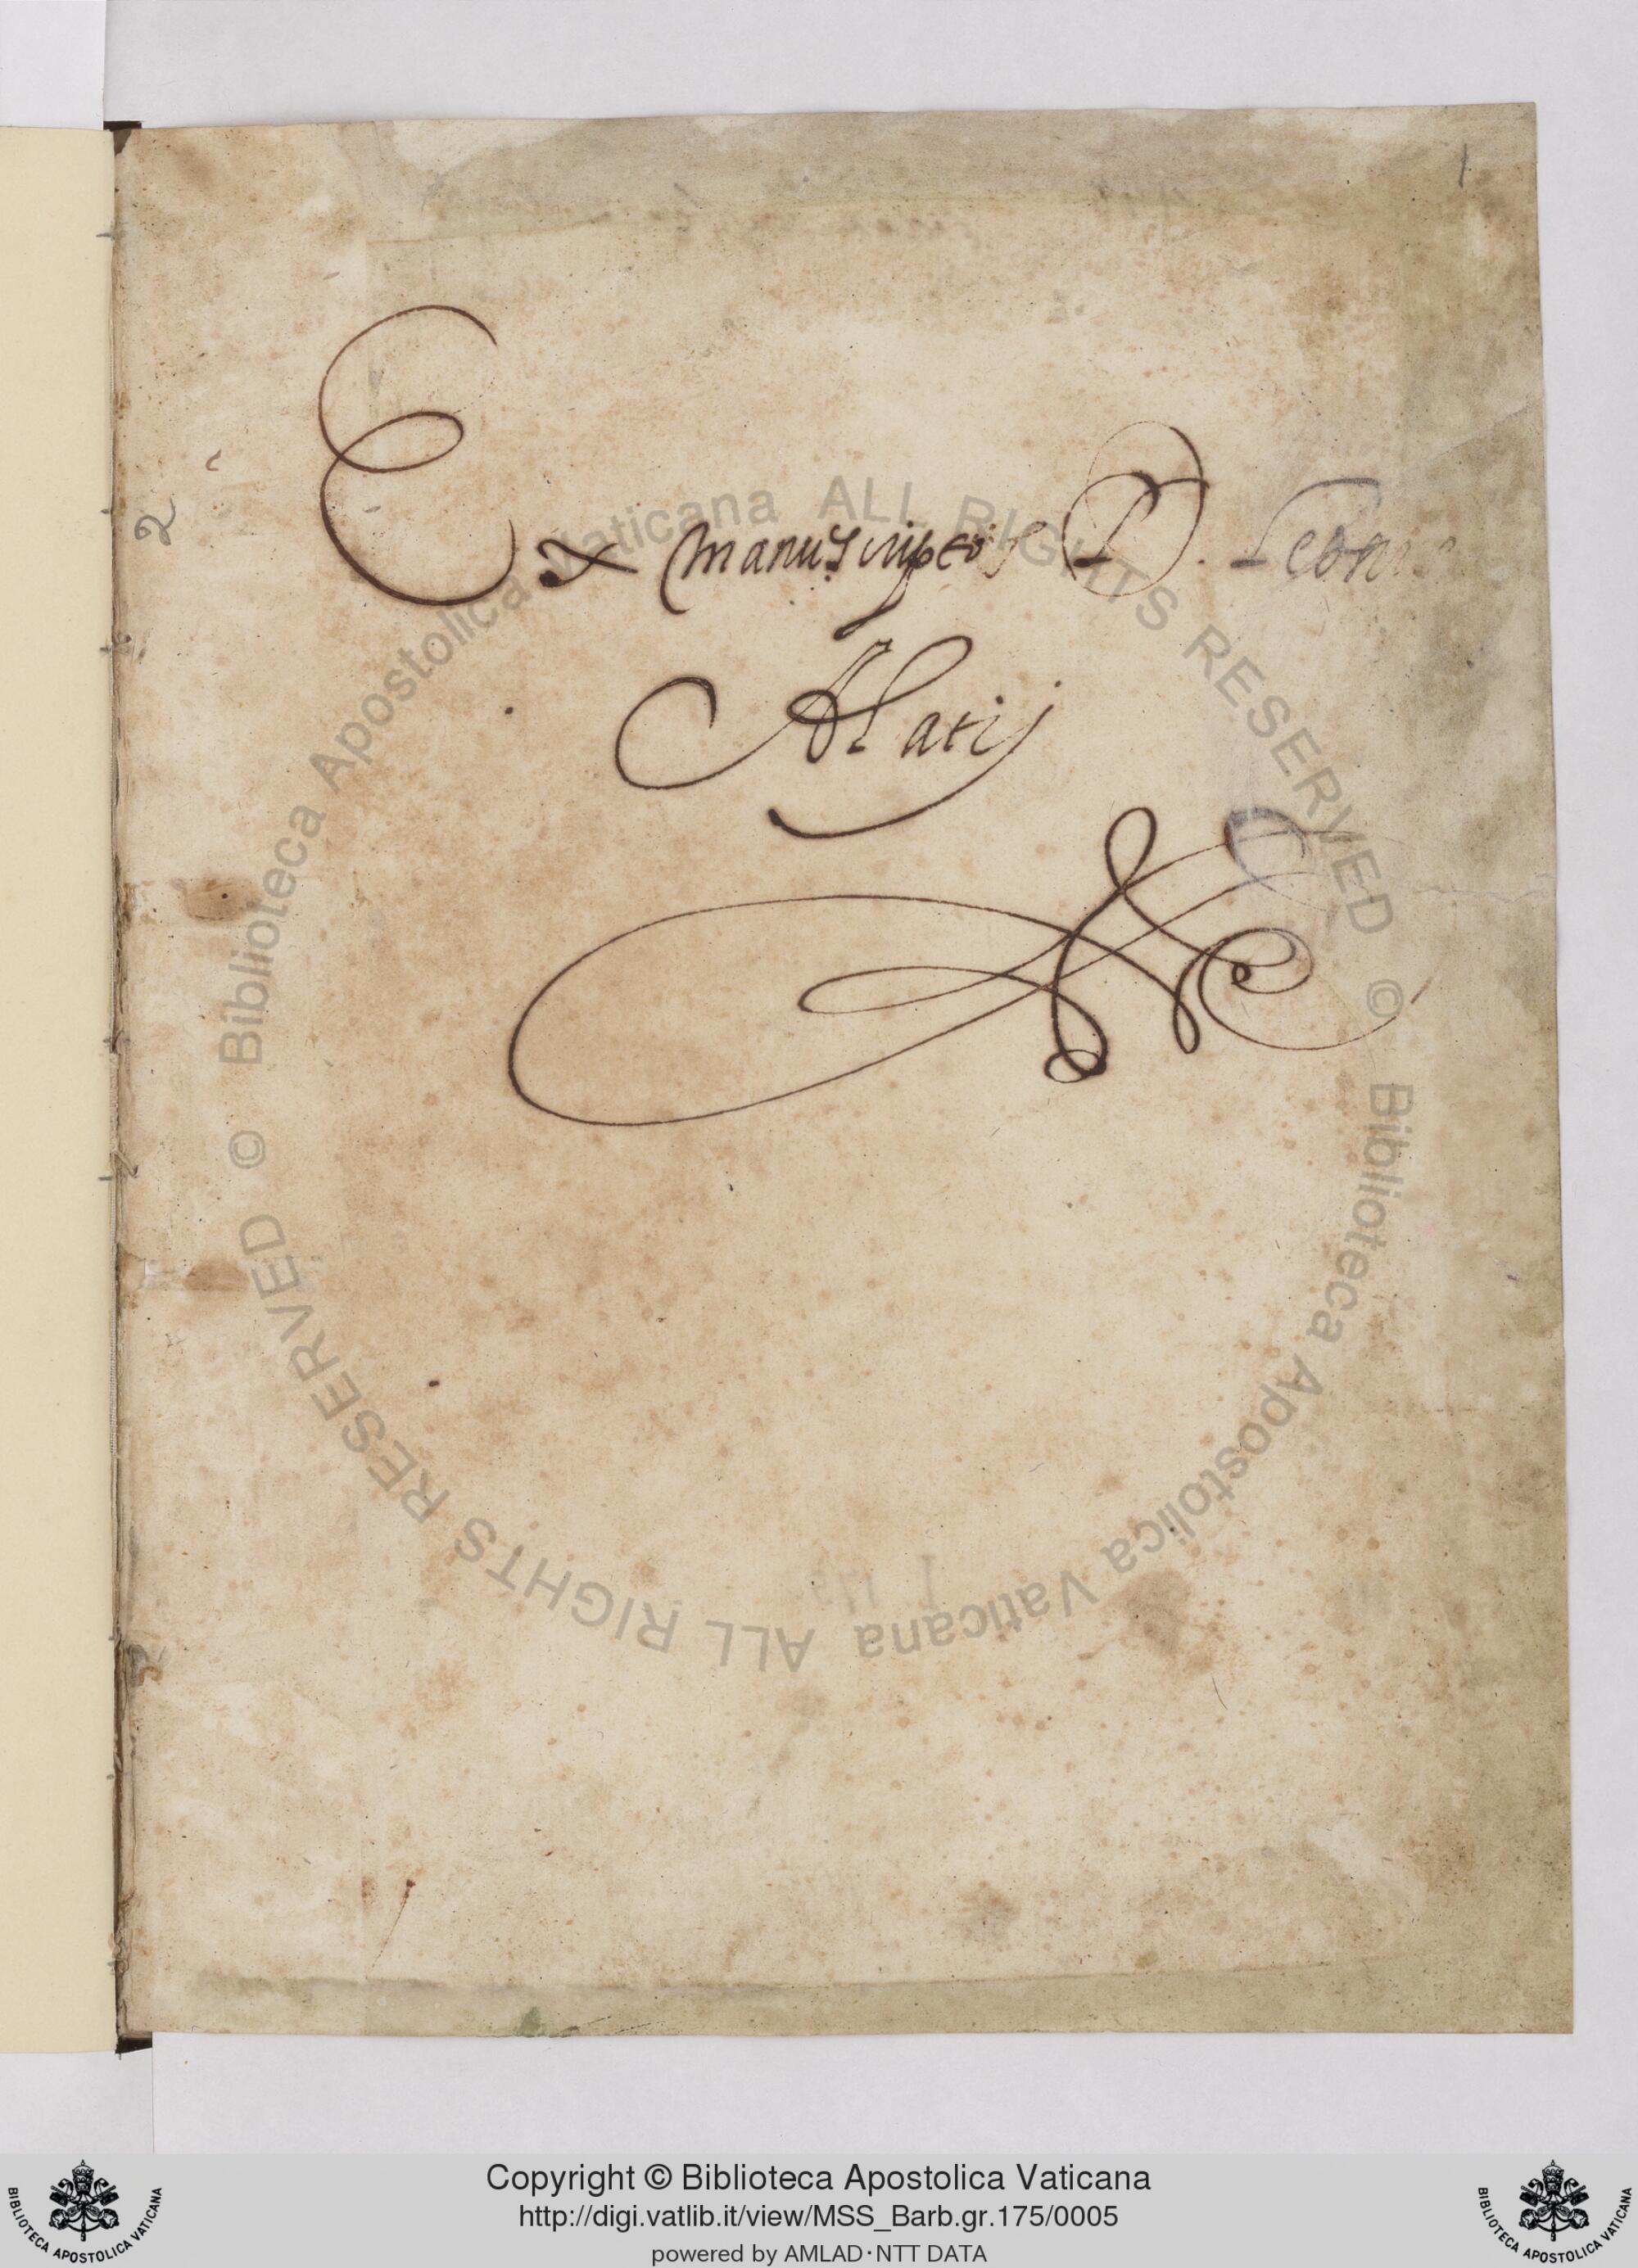 1
Ex manuscriptis D. Leonis
Alatij
© Biblioteca Apostolica Vaticana ALL RIGHTS RESERVED © Biblioteca Apostolica Vaticana ALL RIGHTS RESERVED
Copyright © Biblioteca Apostolica Vaticana
http://digi.vatlib.it/view/MSS_Barb.gr.175/0005
powered by AMLAD·NTT DATA
BIBLIOTECA APOSTOLICA VATICANA
BIBLIOTECA APOSTOLICA VATICANA